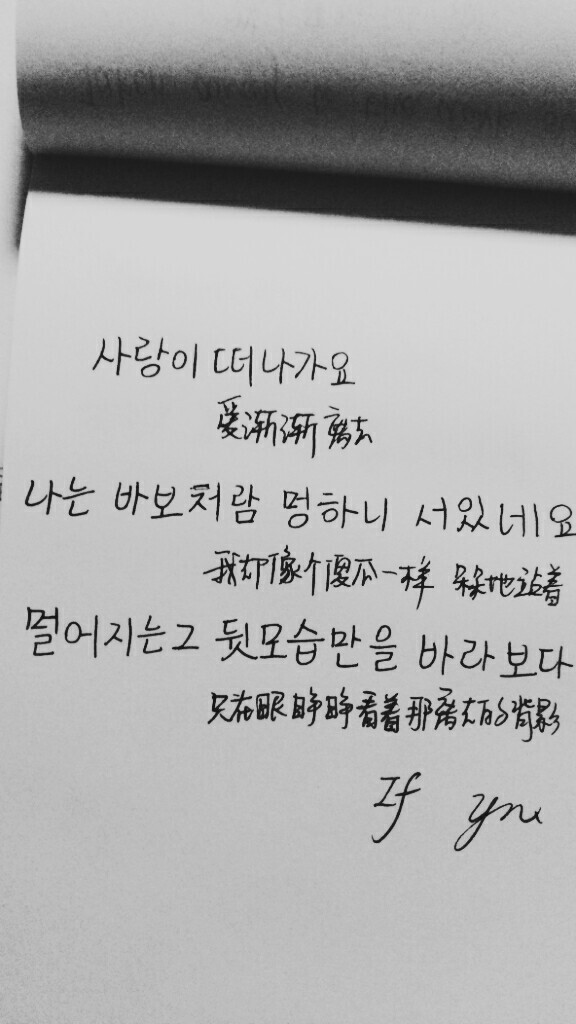 사랑이 떠나가요
爱渐渐离去
나는 바보처럼 멍하니 서있네요
我却像个傻瓜一样 呆呆地站着
멀어지는그 뒷모습만을 바라보다
只在眼睁睁看着那离去的背影
If you